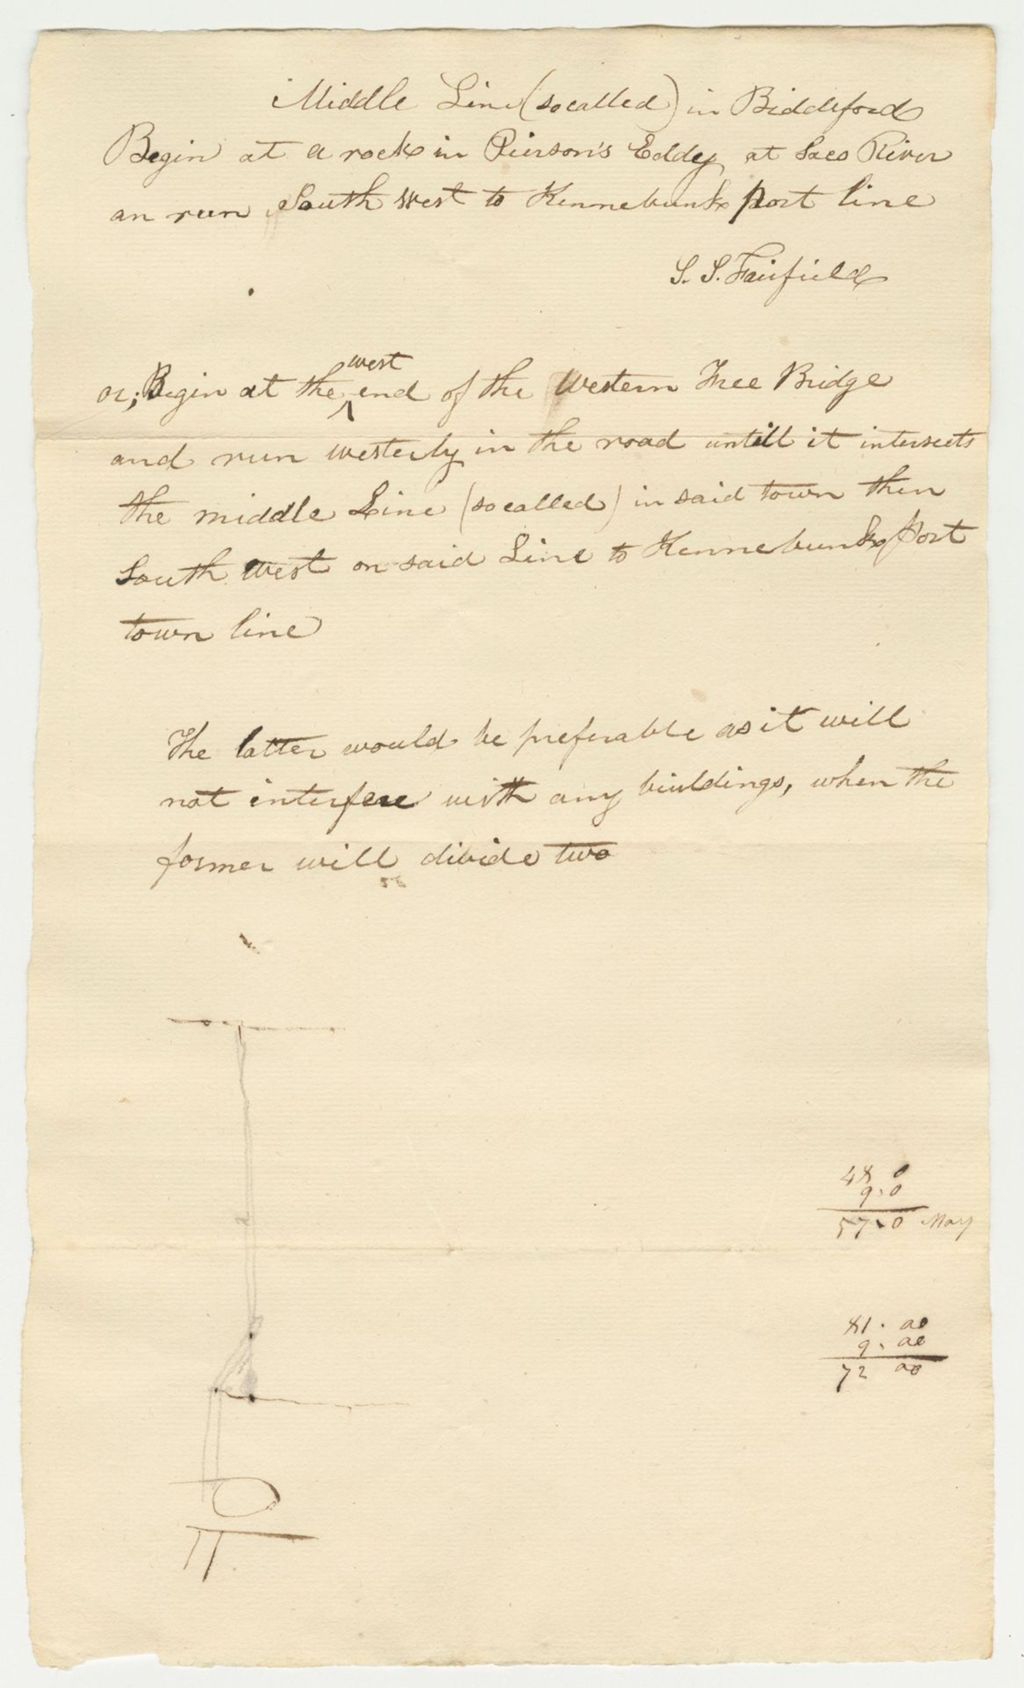 Middle Line (so called) in Biddeford
Begin at a rock in Pierson's Eddy at Saco River
an run South West to Kennebunk port line
S. S. Fairfield
or; Begin at the west end of the Western Free Bridge
and run westerly in the road untill it intersects
the middle Line (so called) in said town then
South West on said Line to Kennebunk port
town line
The latter would be preferable as it will
not interfere with any buildings, when the
former will divide two
48 0
9.0
57.0 May
81. 00
9. 00
72 00